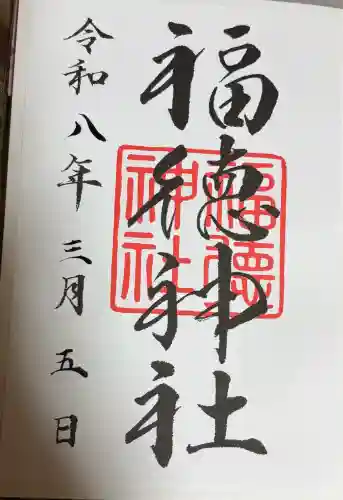 福徳神社
福徳
神社
令和八年三月五日